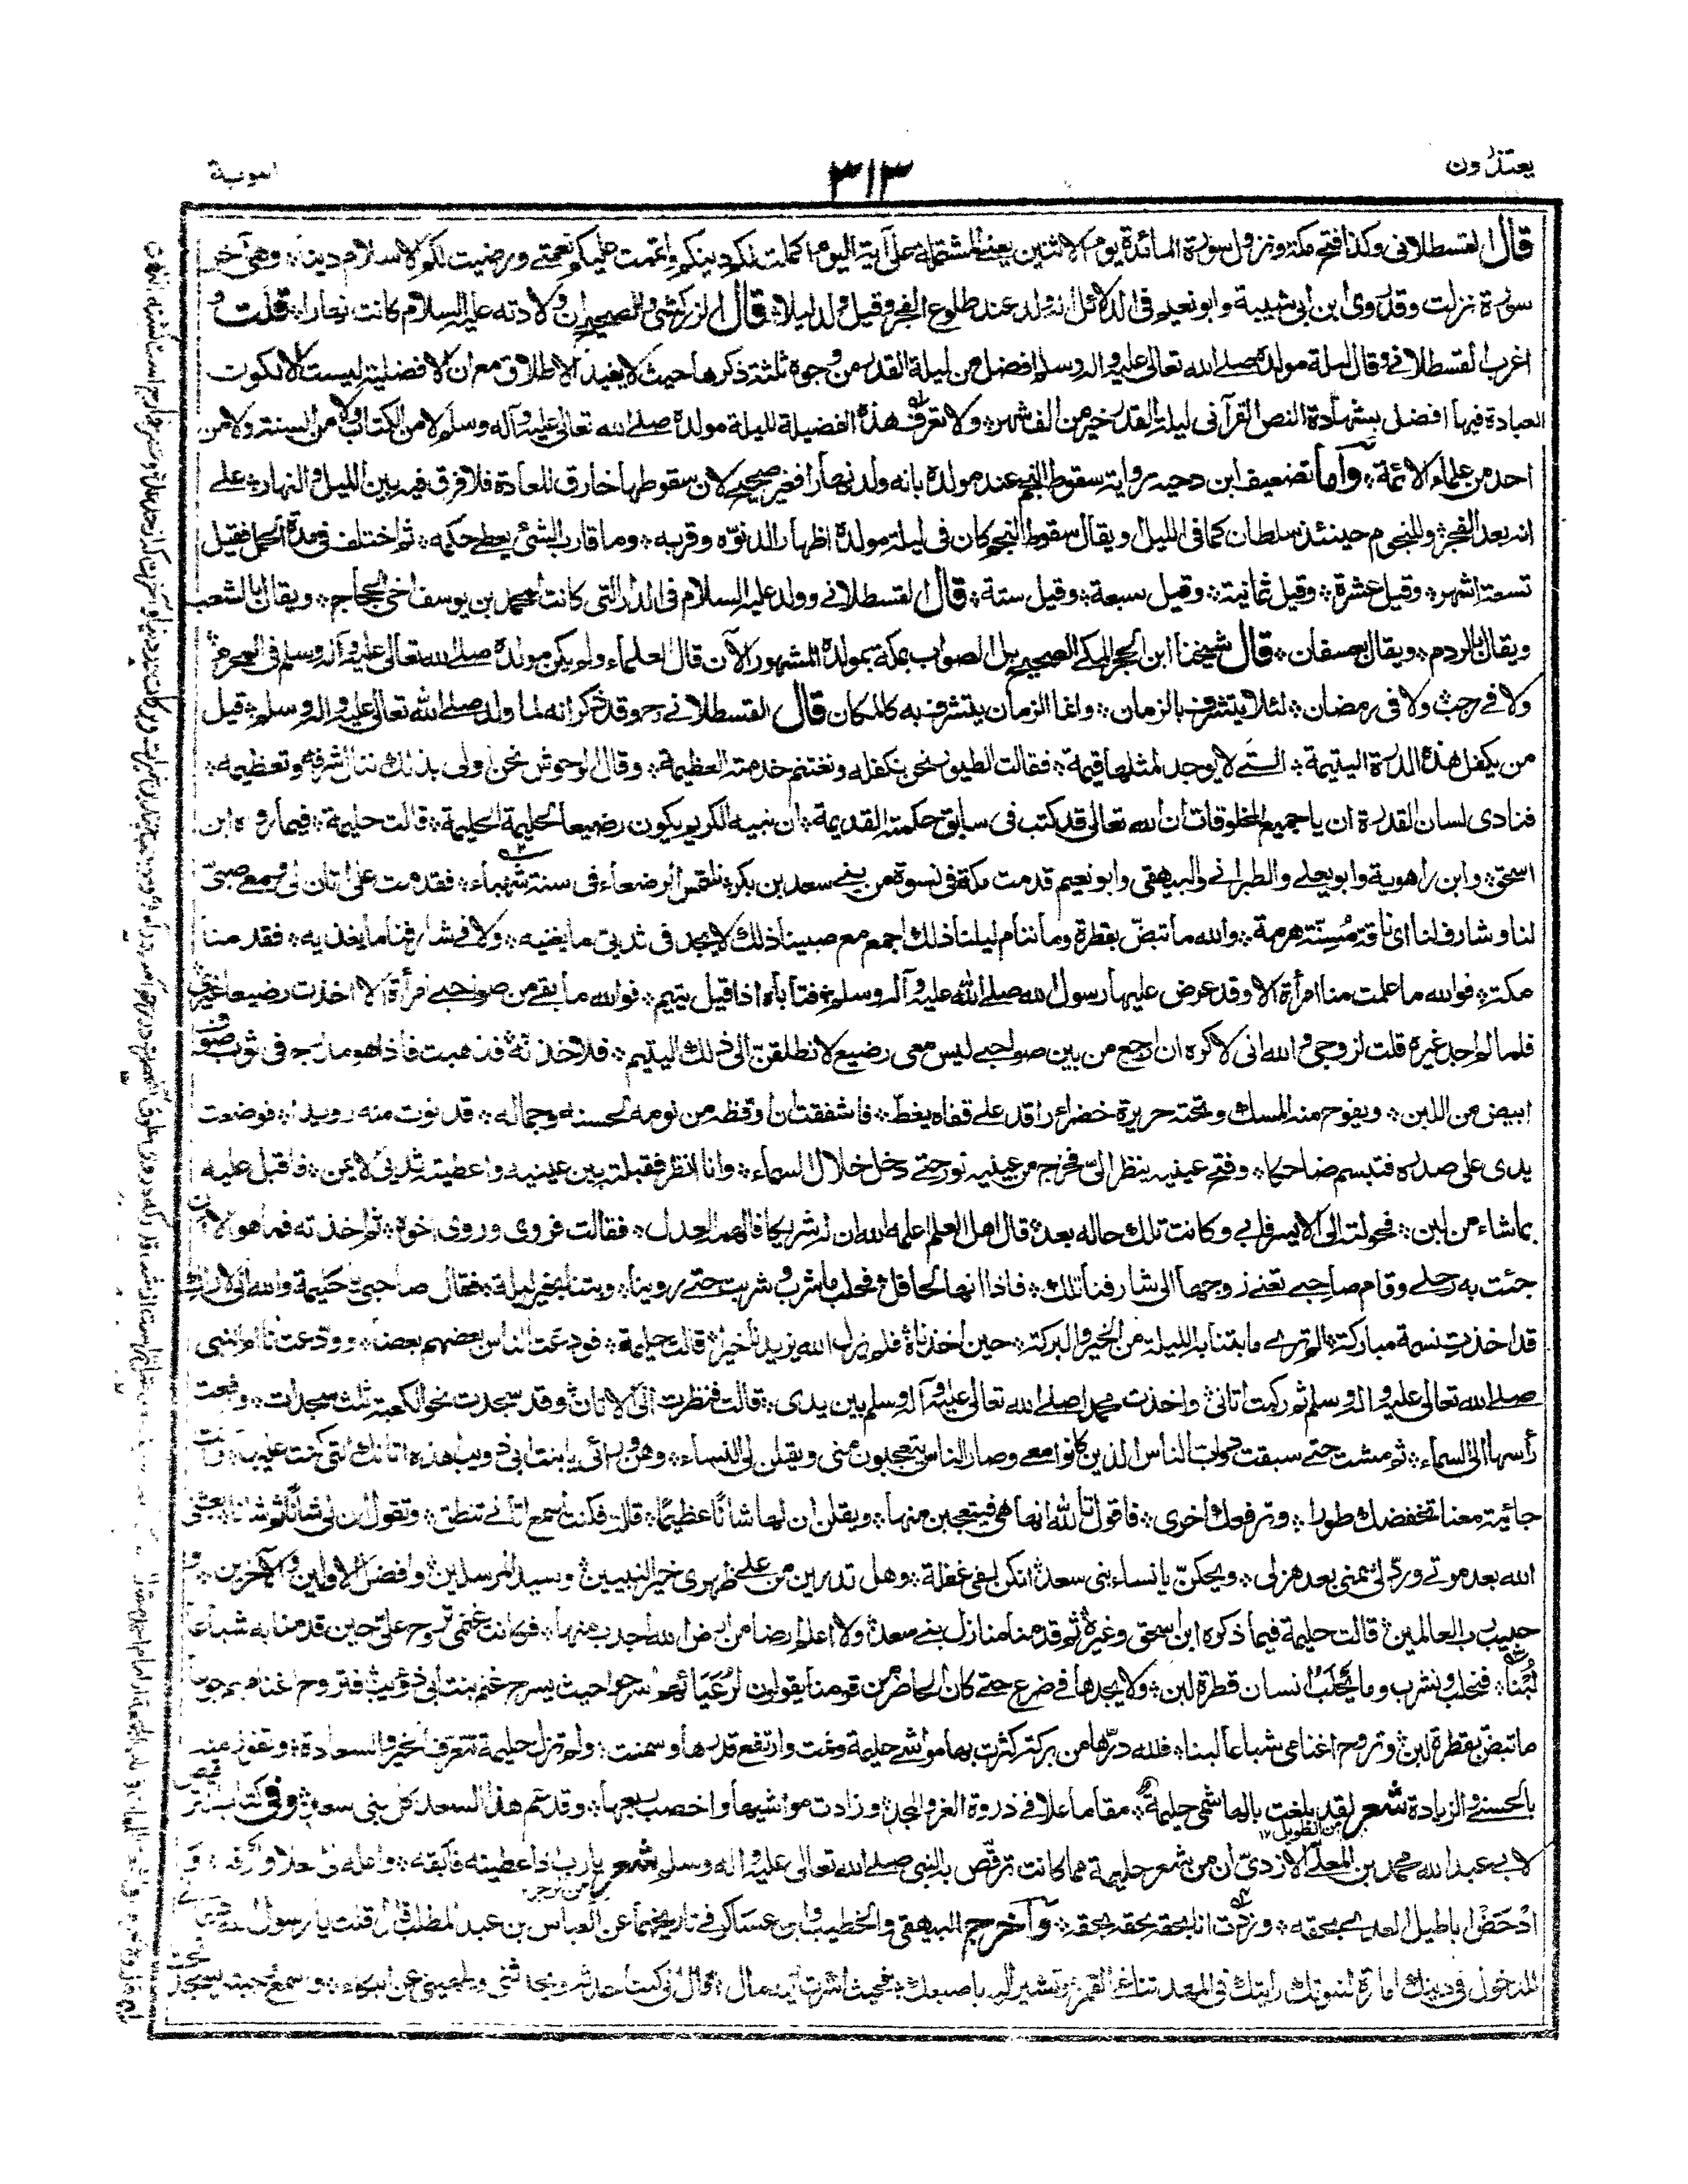 يعتذرون
٣١٣
التوبة
قال القسطلاني وكذا فتح مكة ونزول سورة المائدة يوم الاثنين يعني المشتملة على آية اليوم اكملت لكم دينكم واتممت عليكم نعمتي ورضيت لكم الاسلام دينا ۞ وهي آخر
سورة نزلت وقد روى ابن ابي شيبة وابو نعيم في الدلائل انه ولد عند طلوع الفجر وقيل ولد ليلا ۞ قال الزركشي والصحيح ان ولادته عليه السلام كانت نهارا ۞ قلت و
اغرب القسطلاني وقال ليلة مولده صلى الله تعالى عليه واله وسلم افضل من ليلة القدر من وجوه ثلثة ذكرها حيث لا يفيد الاطلاق مع ان الافضلية ليست الا لكون
العبادة فيها افضل بشهادة النص القرآني ليلة القدر خير من الف شهر ۞ ولا تعرف هذه الفضيلة لليلة مولده صلى الله تعالى عليه وآله وسلم لا من الكتاب ولا من السنة ولا من
احد من علماء الائمة ۞ واما تضعيف ابن دحية رواية سقوط النجم عند مولده بانه ولد نهارا فغير صحيح لان سقوطها خارق للعادة فلا فرق فيه بين الليل والنهار ۞ على
انه بعد الفجر وللنجوم حينئذ سلطان كما في الليل او يقال سقوط النجم كان في ليلة مولده اظهارا لدنوّه وقربه ۞ وما قارب الشئ يعطى حكمه ۞ ثم اختلف في مدة الحمل فقيل
تسعة اشهر ۞ وقيل عشرة ۞ وقيل ثمانية ۞ وقيل سبعة ۞ وقيل ستة ۞ قال القسطلاني وولد عليه السلام في الدار التي كانت لمحمد بن يوسف اخي الحجاج ۞ ويقال بالشعب
ويقال بالردم ۞ ويقال بعسفان ۞ قال شيخنا ابن الحجر المكي الصحيح بل الصواب بمكة بمولده المشهور الآن قال العلماء ولم يكن مولده صلى الله تعالى عليه وآله وسلم في المحرم
ولا في رجب ولا في رمضان ۞ لئلا يتشرف بالزمان ۞ وانما الزمان يتشرف به كالمكان قال القسطلاني رح وقد ذكر انه لما ولد صلى الله تعالى عليه واله وسلم ۞ قيل
من يكفل هذه الدرة اليتيمة ۞ التي لا يوجد لمثلها قيمة ۞ فقالت الطيور نحن نكفله ونغتنم خدمته العظيمة ۞ وقال الوحوش نحن اولى بذلك ننال شرفه وتعظيمه ۞
فنادى لسان القدرة ان يا جميع المخلوقات ان الله تعالى قد كتب في سابق حكمته القديمة ۞ ان نبيه الكريم يكون رضيعا لحليمة الحليمة ۞ قالت حليمة ۞ فيما رواه ابن
اسحق ۞ وابن راهوية وابو يعلى والطبراني والبيهقي وابو نعيم قدمت مكة في نسوة من بني سعد بن بكر ۞ نلتمس الرضعاء في سنة شهباء ۞ فقدمت على اتان لي ومعي صبيّ
لنا وشارف لنا اي ناقة مُسِنّة هرمة ۞ والله ما تبضّ بقطرة وما ننام ليلنا ذلك اجمع مع صبينا ذلك لا يجد في ثديي ما يغنيه ۞ ولا في شارفنا ما يغذيه ۞ فقدمنا
مكة ۞ فوالله ما علمت منا امرأة الا وقد عرض عليها رسول الله صلى الله عليه وآله وسلم ۞ فتأباه اذا قيل يتيم ۞ فوالله ما بقي من صواحبي امرأة الا اخذت رضيعا غيري
فلما لم اجد غيره قلت لزوجي والله اني لاكره ان ارجع من بين صواحبي ليس معي رضيع لانطلقن الى ذلك اليتيم ۞ فلاخذنه ۞ فذهبت فاذا هو مدرج في ثوب صوف
ابيض من اللبن ۞ ويفوح منه المسك وتحته حريرة خضراء راقد على قفاه يغطّ ۞ فاشفقت ان اوقظه من نومه لحسنه وجماله ۞ فدنوت منه رويدا ۞ فوضعت
يدي على صدره فتبسم ضاحكا ۞ وفتح عينيه ينظر اليّ فخرج من عينيه نور حتى دخل خلال السماء ۞ وانا انظر فقبلته بين عينيه واعطيته ثديي الايمن ۞ فاقبل عليه
بما شاء من لبن ۞ فحولته الى الايسر فابى وكانت تلك حاله بعد ۞ قال اهل العلم اعلمه الله ان له شريكا فالهمه العدل ۞ فقالت فروى وروى اخوه ۞ ثم اخذته فما هو الا ان
جئت به رحلي وقام صاحبي تعني زوجها الى شارفنا تلك ۞ فاذا انها لحافل ۞ فحلب ما شرب وشربت حتى روينا ۞ وبتنا بخير ليلة ۞ فقال صاحبي يا حليمة والله اني لاراك
قد اخذت نسمة مباركة ۞ الم تري ما بتنا به الليلة من الخير والبركة ۞ حين اخذناه فلم يزل الله يزيدنا خيرا ۞ قالت حليمة ۞ فودعت الناس بعضهم بعضا ۞ وودعت انا ام النبي
صلى الله تعالى عليه واله وسلم ثم ركبت اتاني ۞ واخذت محمدا صلى الله تعالى عليه وآله وسلم بين يدي ۞ قالت فنظرت الى الاتان ۞ وقد سجدت نحو الكعبة ثلث سجدات ۞ ورفعت
رأسها الى السماء ۞ ثم مشت حتى سبقت دواب الناس الذين كانوا معي وصار الناس يتعجبون مني ويقلن لي النساء ۞ وهن ورائي يا بنت ابي ذويب هذه اتانك التي كنت عليها ۞ وانت
جائية معنا تخفضك طورا ۞ وترفعك اخرى ۞ فاقول تالله انها هي فيتعجبن منها ۞ ويقلن ان لها شانا عظيما ۞ قالت فكنت اسمع اتاني تنطق ۞ وتقول ان لي شانا ثم شانا ۞ بعثني
الله بعد موتي وردّ لي سمني بعد هزلي ۞ ويحكنّ يا نساء بني سعد ۞ انكن لفي غفلة ۞ وهل تدرين من على ظهري خير النبيين ۞ وسيد المرسلين ۞ وافضل الاولين والآخرين ۞ و
حبيب رب العالمين ۞ قالت حليمة فيما ذكره ابن اسحق وغيره ۞ ثم قدمنا منازل بني سعد ۞ ولا اعلم ارضا من ارض الله اجدب منها ۞ فكانت غنمي تروح عليّ حين قدمنا به شباعا
لُبّنا ۞ فنحلب ونشرب وما يحلب انسان قطرة لبن ۞ ولا يجدها في ضرع حتى كان الحاضر من قومنا يقولون لرعيانهم اسرحوا حيث يسرح غنم بنت ابي ذؤيب ۞ فتروح اغنامهم جوعا
ما تبض بقطرة لبن ۞ وتروح اغنامي شباعا لبنا ۞ فلله درّها من بركة كثرت بها مواشي حليمة ونمت وارتفع قدرها وسمنت ۞ ولم تزل حليمة تتعرف الخير والسعادة ۞ وتفوز منه
بالحسنى والزيادة شعر لقد بلغت بالهاشمي حليمة ۞ مقاما علا في ذروة العز والمجد ۞ وزادت مواشيها واخصب ربعها ۞ وقد عم هذا السعد كل بني سعد ۞ وفي كتاب الترقيص
من الطويل ١٢
لابي عبد الله محمد بن المعلّى الازديّ ان من شعر حليمة مما كانت ترقّص بالنبي صلى الله تعالى عليه واله وسلم شعر يا رب اذ اعطيته فابقه ۞ واعله الى العلا وارقه ۞ و
ادْحَضْ اباطيل العدى بحقه ۞ وزدت انا بحقه بحقه بحقه ۞ وآخرج البيهقي والخطيب وابن عساكر في تاريخهما عن العباس بن عبد المطلب قال قلت يا رسول الله
للدخول في دينك امارة لنبوتك رايتك في المهد تناغي القمر ۞ وتشير اليه باصبعك ۞ فحيث اشرت اليه مال ۞ قال اني كنت احدثه ويحدثني ويلهيني عن البكاء ۞ واسمع وجبته يسجد